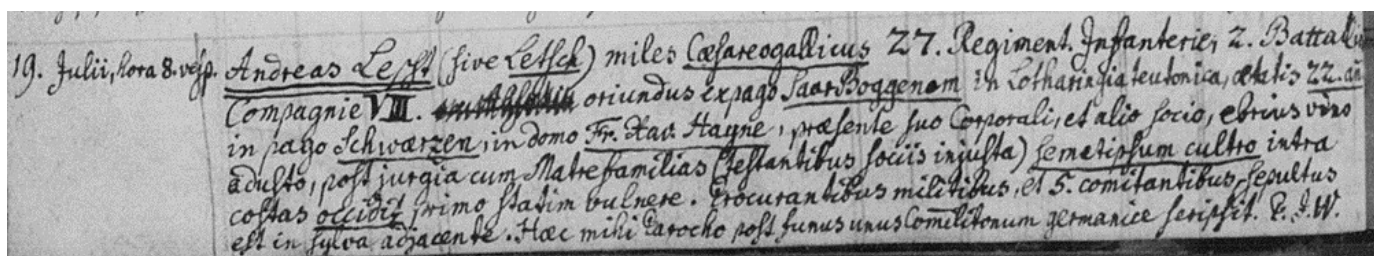 19. Julii, hora 8. vesp. Andreas Lescht (sive Letsch) miles Cæsareogallicus 27. Regiment. Infanterie, 2. Battall
Compagnie VIII. oriundus ex pago SaarBoggenom in Lotharingia teutonica, ætatis 22. an
in pago Schwarzen, in domo Fr. Xav. Hayne, præsente suo Corporali, et alio socio, ebrius vino
adusto, post jurgia cum Matrefamilias (testantibus sociis injusta) semetipsum cultro intra
costas occidit primo statim vulnere. Procurantibus militibus, et 5. comitantibus sepultus
est in sylva adjacente. Hæc mihi Parocho post funus unus Comilitonum germanice scripsit. P. J. W.